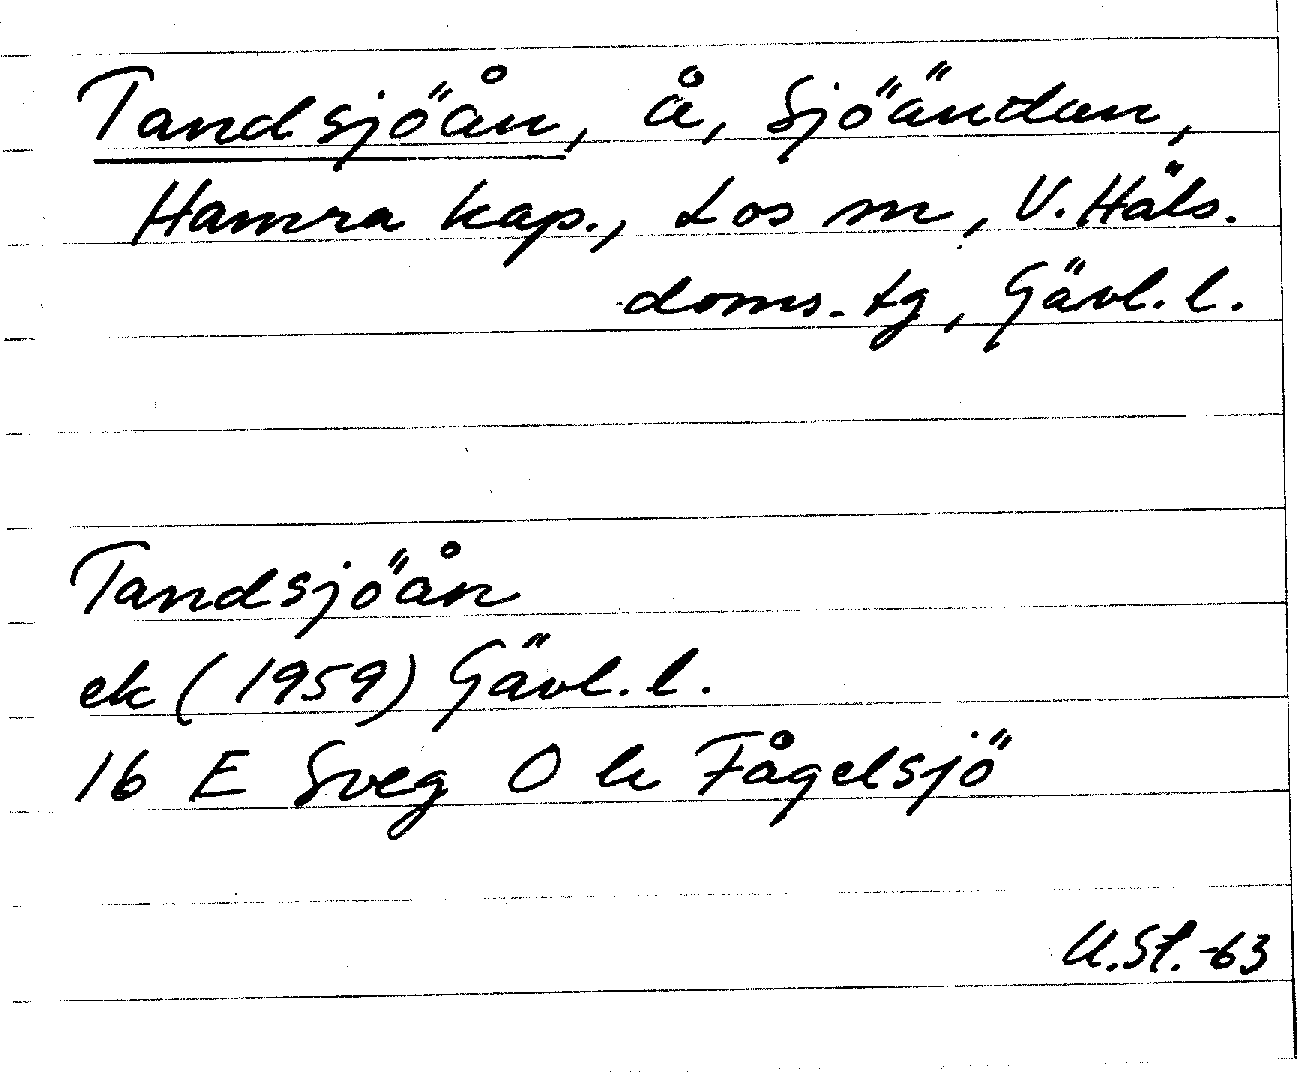 Tandsjöån, å, Sjöändan,
Hamra kap., Los sn, V. Häls.
doms.-tg, Gävl. l.
Tandsjöån
ek (1959) Gävl. l.
16 E Sveg O h Fågelsjö
U.St. -63